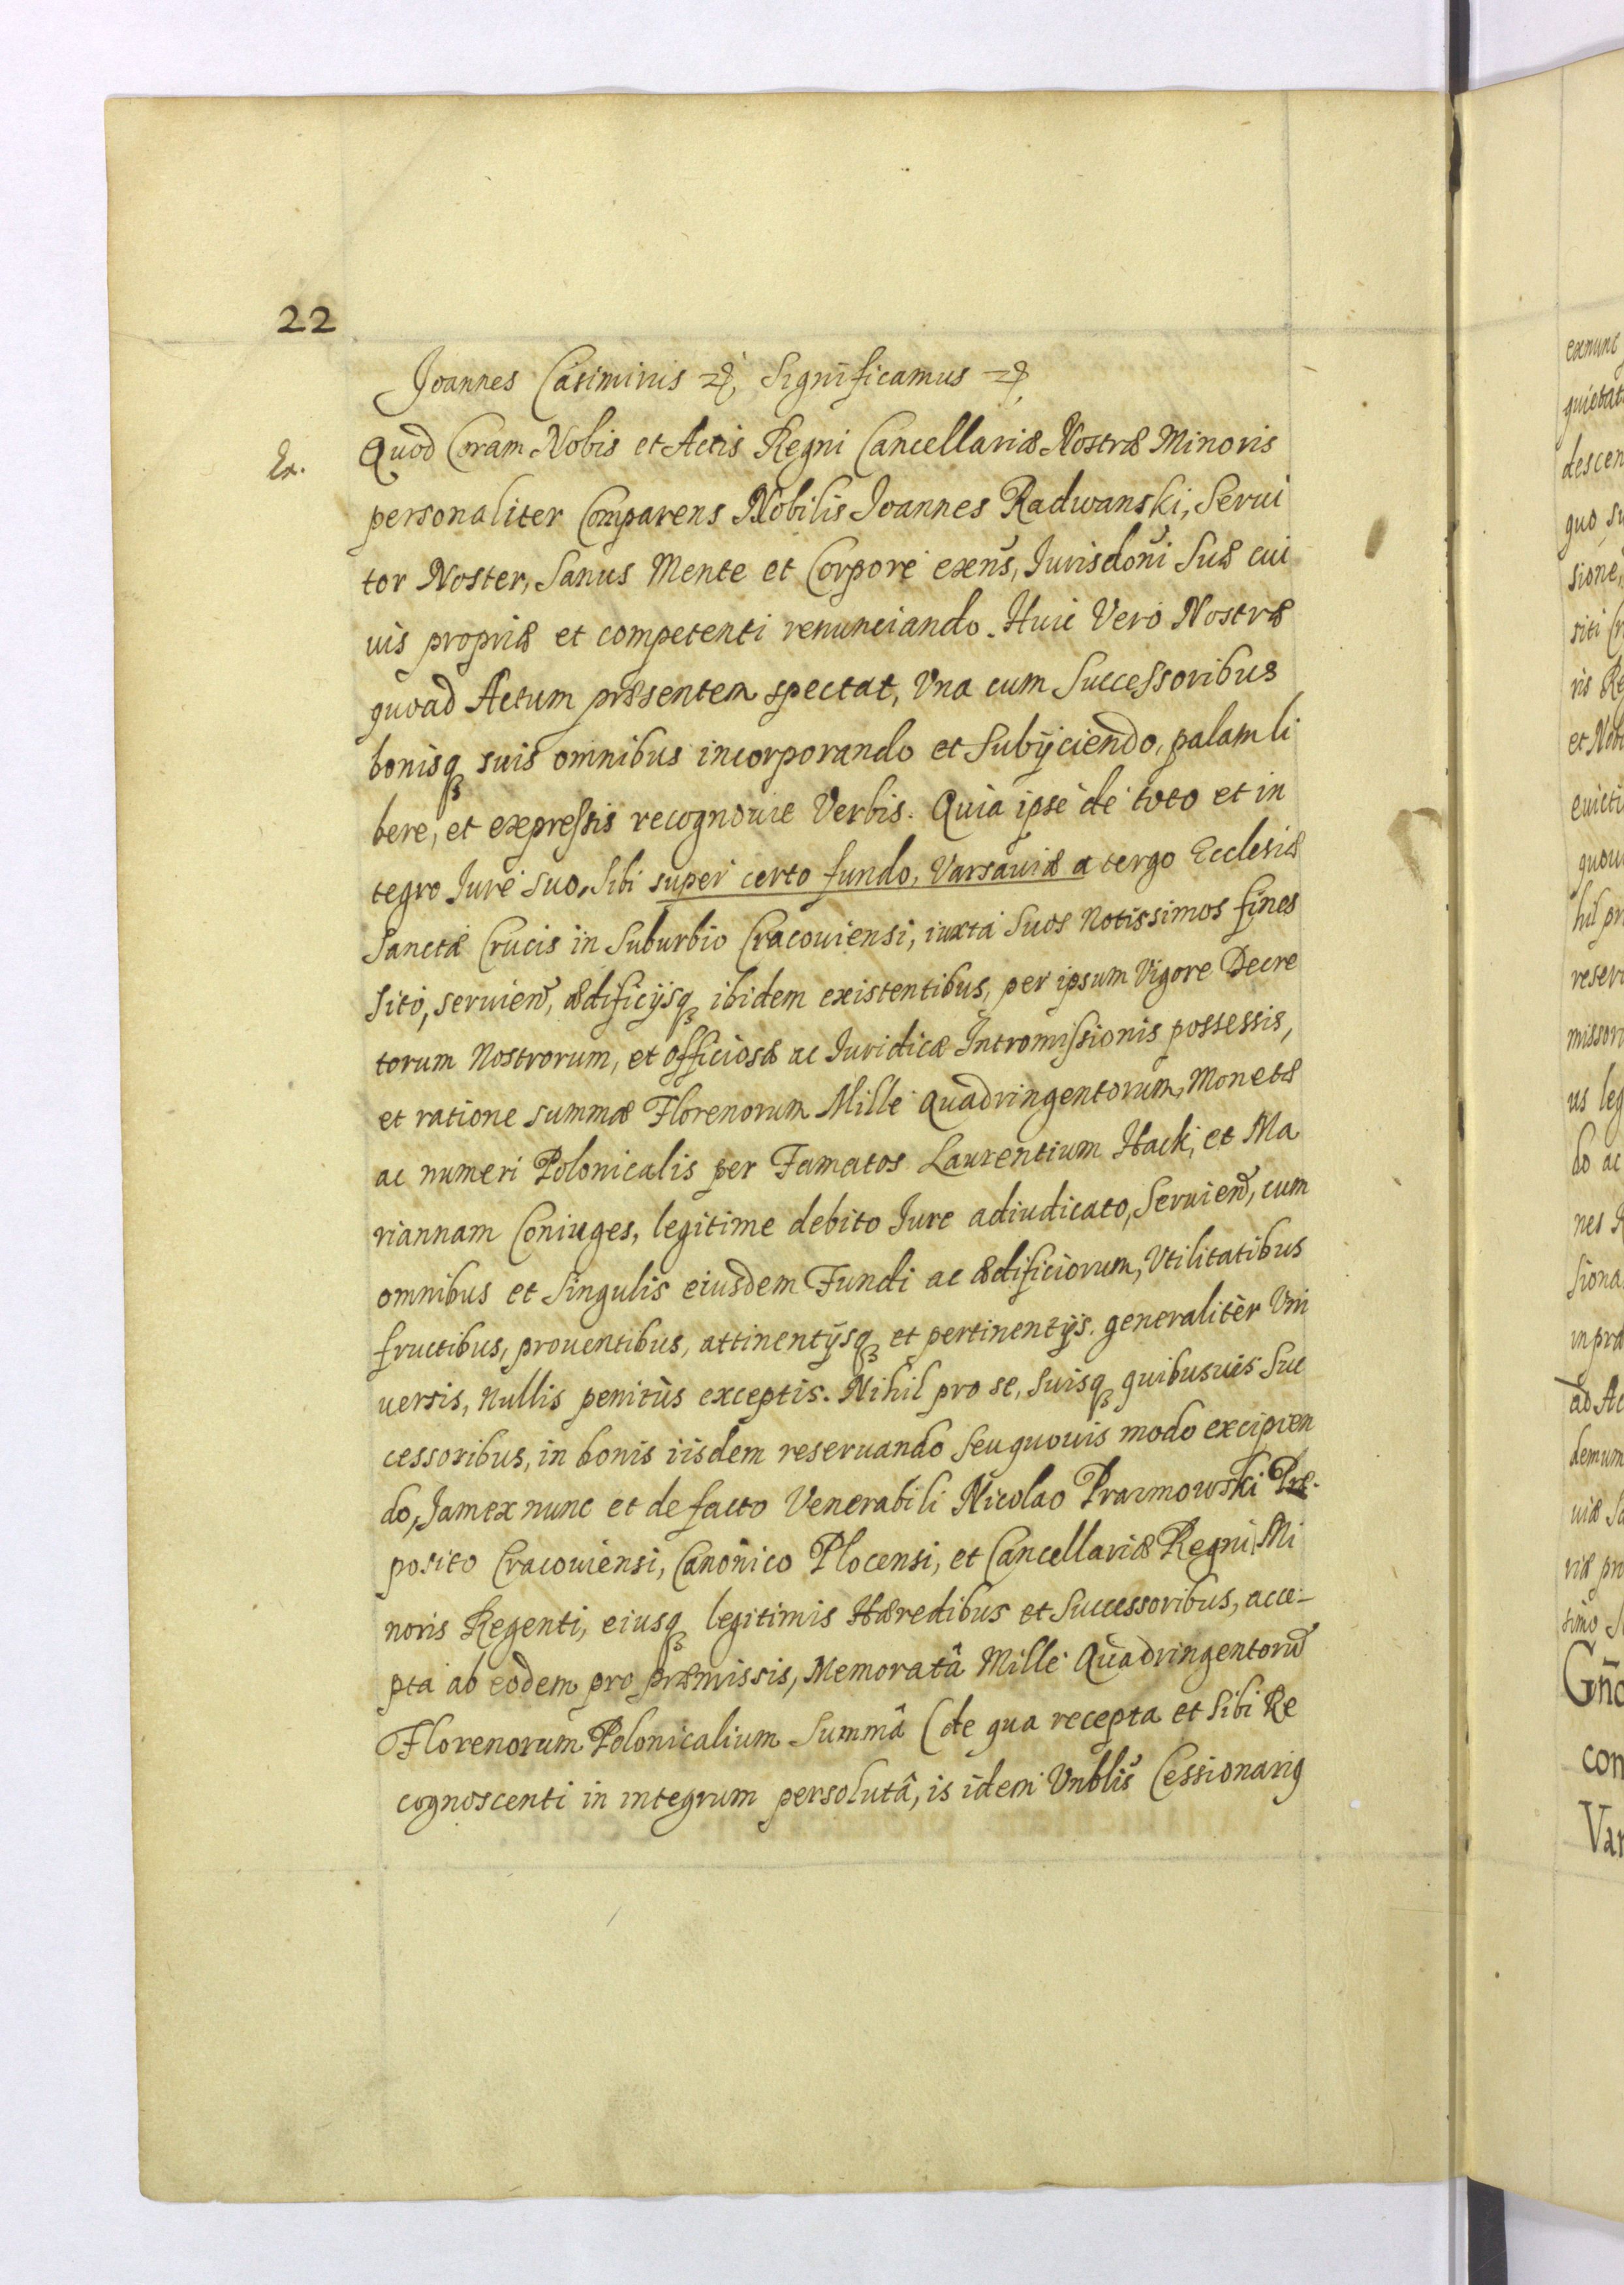 22
Joannes Casimirus etc, Significamus etc,
Ex.
Quod Coram Nobis et Actis Regni Cancellariæ Nostræ Minoris
personaliter Comparens Nobilis Joannes Radwanski, Serui
tor Noster, Sanus Mente et Corpore exns̃, Jurisdoñi Suæ cui
uis propriæ et competenti renunciando. Huic Vero Nostræ
quoad Actum præsentem spectat, Vna cum Successoribus
bonisqꝫ suis omnibus incorporando et Subijciendo, palam li
bere, et expressis recognouit Verbis. Quia ipse de toto et in
tegro Jure suo, Sibi super certo fundo, Varsauiæ a tergo Ecclesiæ
Sanctæ Crucis in Suburbio Cracouiensi, iuxta Suos Notissimos fines
Sito, seruieñ, ædificijsqꝫ ibidem existentibus, per ipsum Vigore Decre
torum Nostrorum, et Officiosæ ac Juridicæ Intromissionis possessis,
et ratione summæ Florenorum Mille Quadringentorum, Monetæ
ac numeri Polonicalis per Famatos Laurentium Hack, et Ma
riannam Coniuges, legitime debito Jure adiudicato, Seruieñ, cum
omnibus et Singulis eiusdem Fundi ac ædificiorum, Vtilitatibus
fructibus, prouentibus, attinentijsqꝫ et pertinentijs. generalitèr Vni
uersis, Nullis penitùs exceptis. Nihil pro se, Suisqꝫ quibusuis Suc
cessoribus, in bonis iisdem reseruando Seu quouis modo excipien
do, Jam ex nunc et de facto Venerabili Nicolao Prazmowski Præ.
posito Cracouiensi, Canonico Plocensi, et Cancellariæ Regni Mi
noris Regenti, eiusqꝫ legitimis Hæredibus et Successoribus, acce-
pta ab eodem pro præmissis, Memoratâ Mille Quadringentorũ
Florenorum Polonicalium Summâ (de qua recepta et Sibi Re
cognoscenti in integrum persolutâ, is idem Vnblis̃ Cessionariꝯ